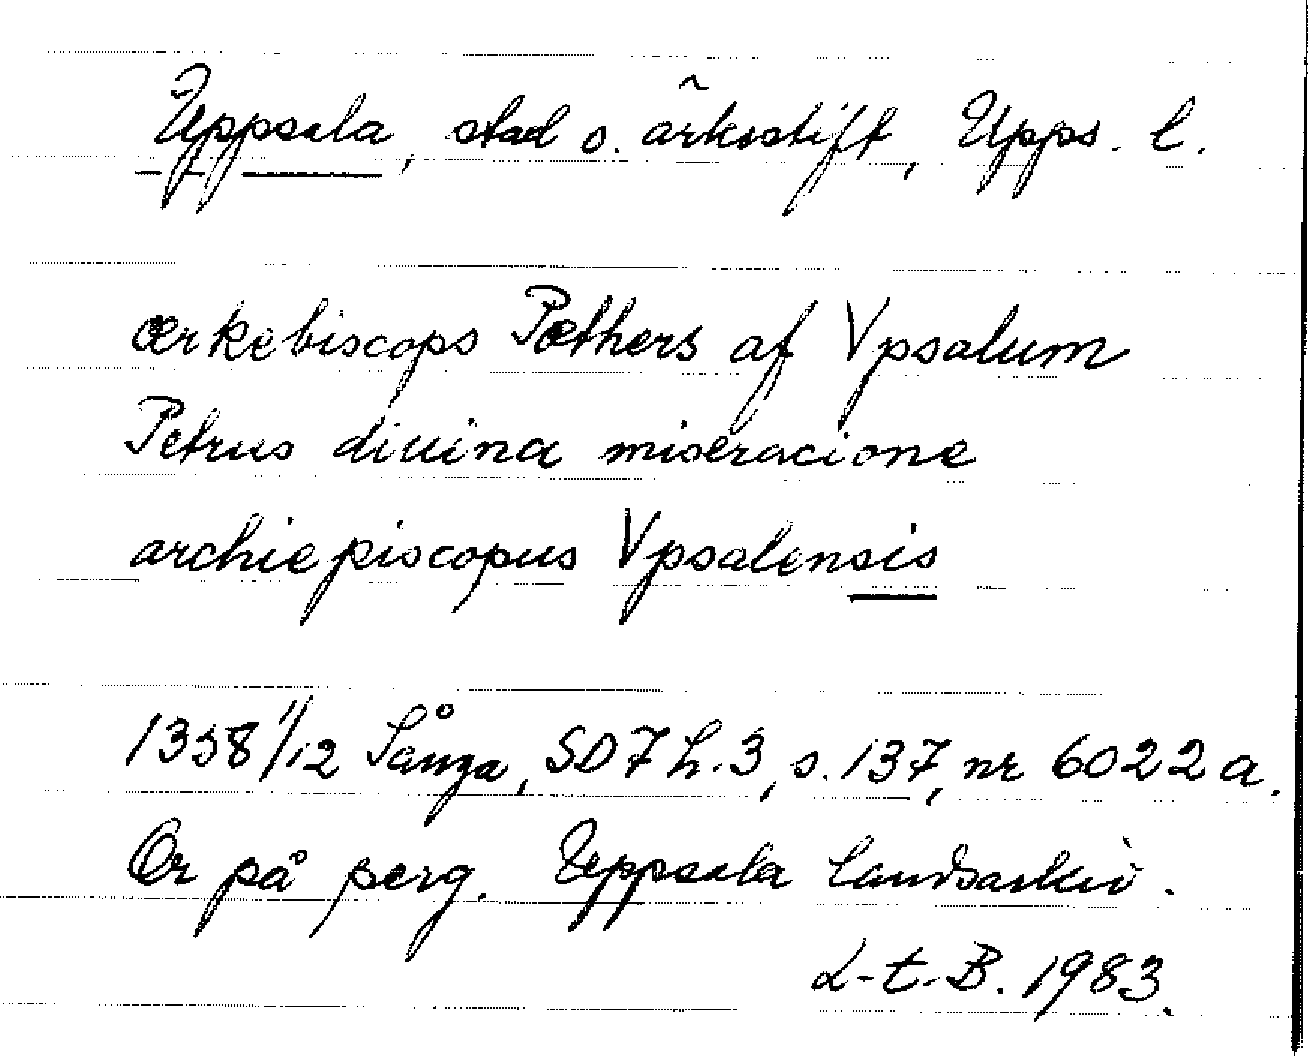 Uppsala, stad o. ärkestift, Upps. l.
ærkebiscops Pæthers af Vpsalum
Petrus diuina miseracione
archiepiscopus Vpsalensis
1338 1/12 Sånga, SD 7 h. 3, s. 137, nr 6022 a.
Or på perg. Uppsala landsarkiv.
L-t-B. 1983.